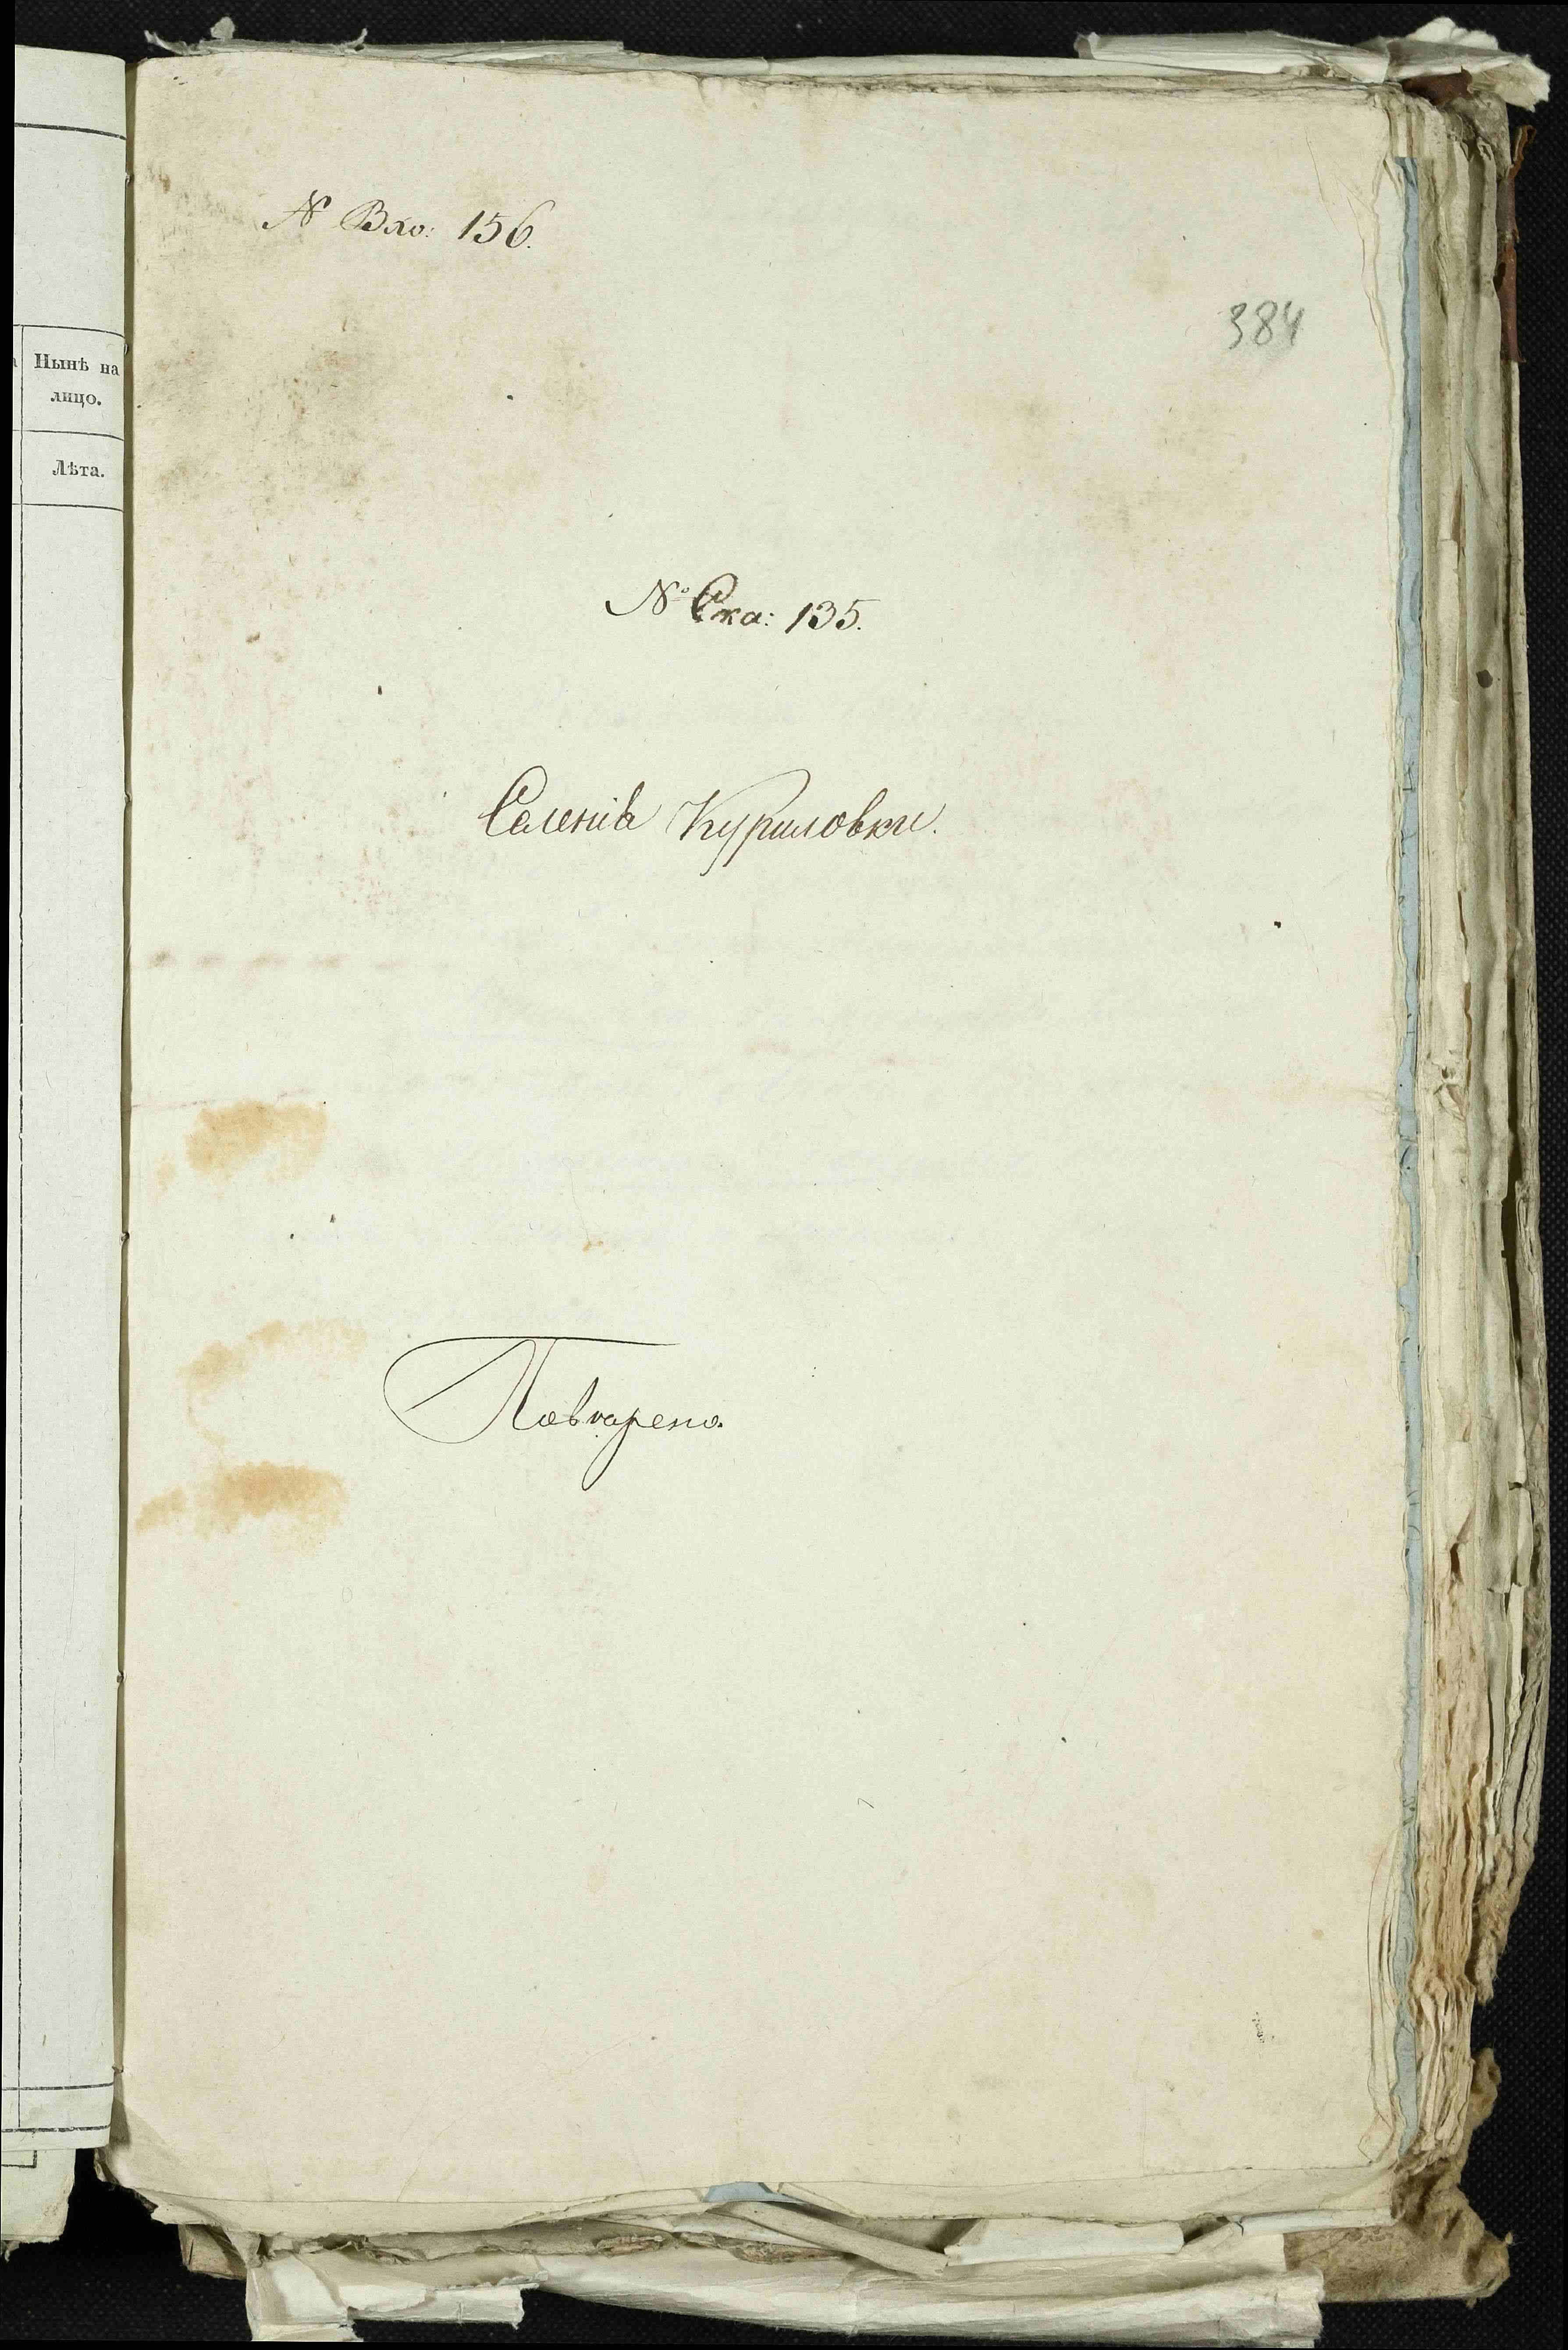 № Вхо: 156.
384
Нынѣ на
лицо.
Лѣта.
№ Ска: 135.
Селенія Куриловки.
Повѣрено.